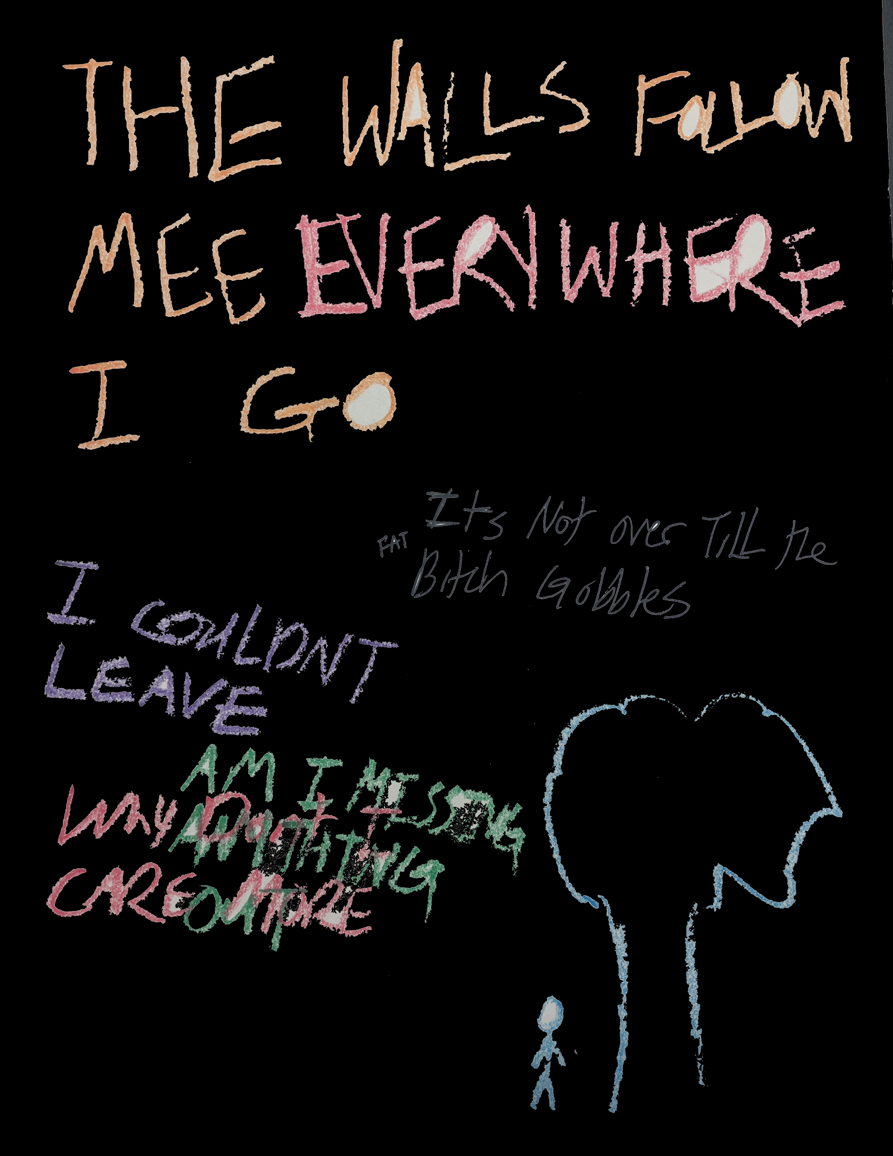 THE WALLS FOLLOW
MEE EVERYWHERE
I GO
Its Not over Till the
FAT Bitch Gobbles
I COULDNT
LEAVE
AM I MISSING
ANYTHING
OUT
WhY Dont I
CARE MORE